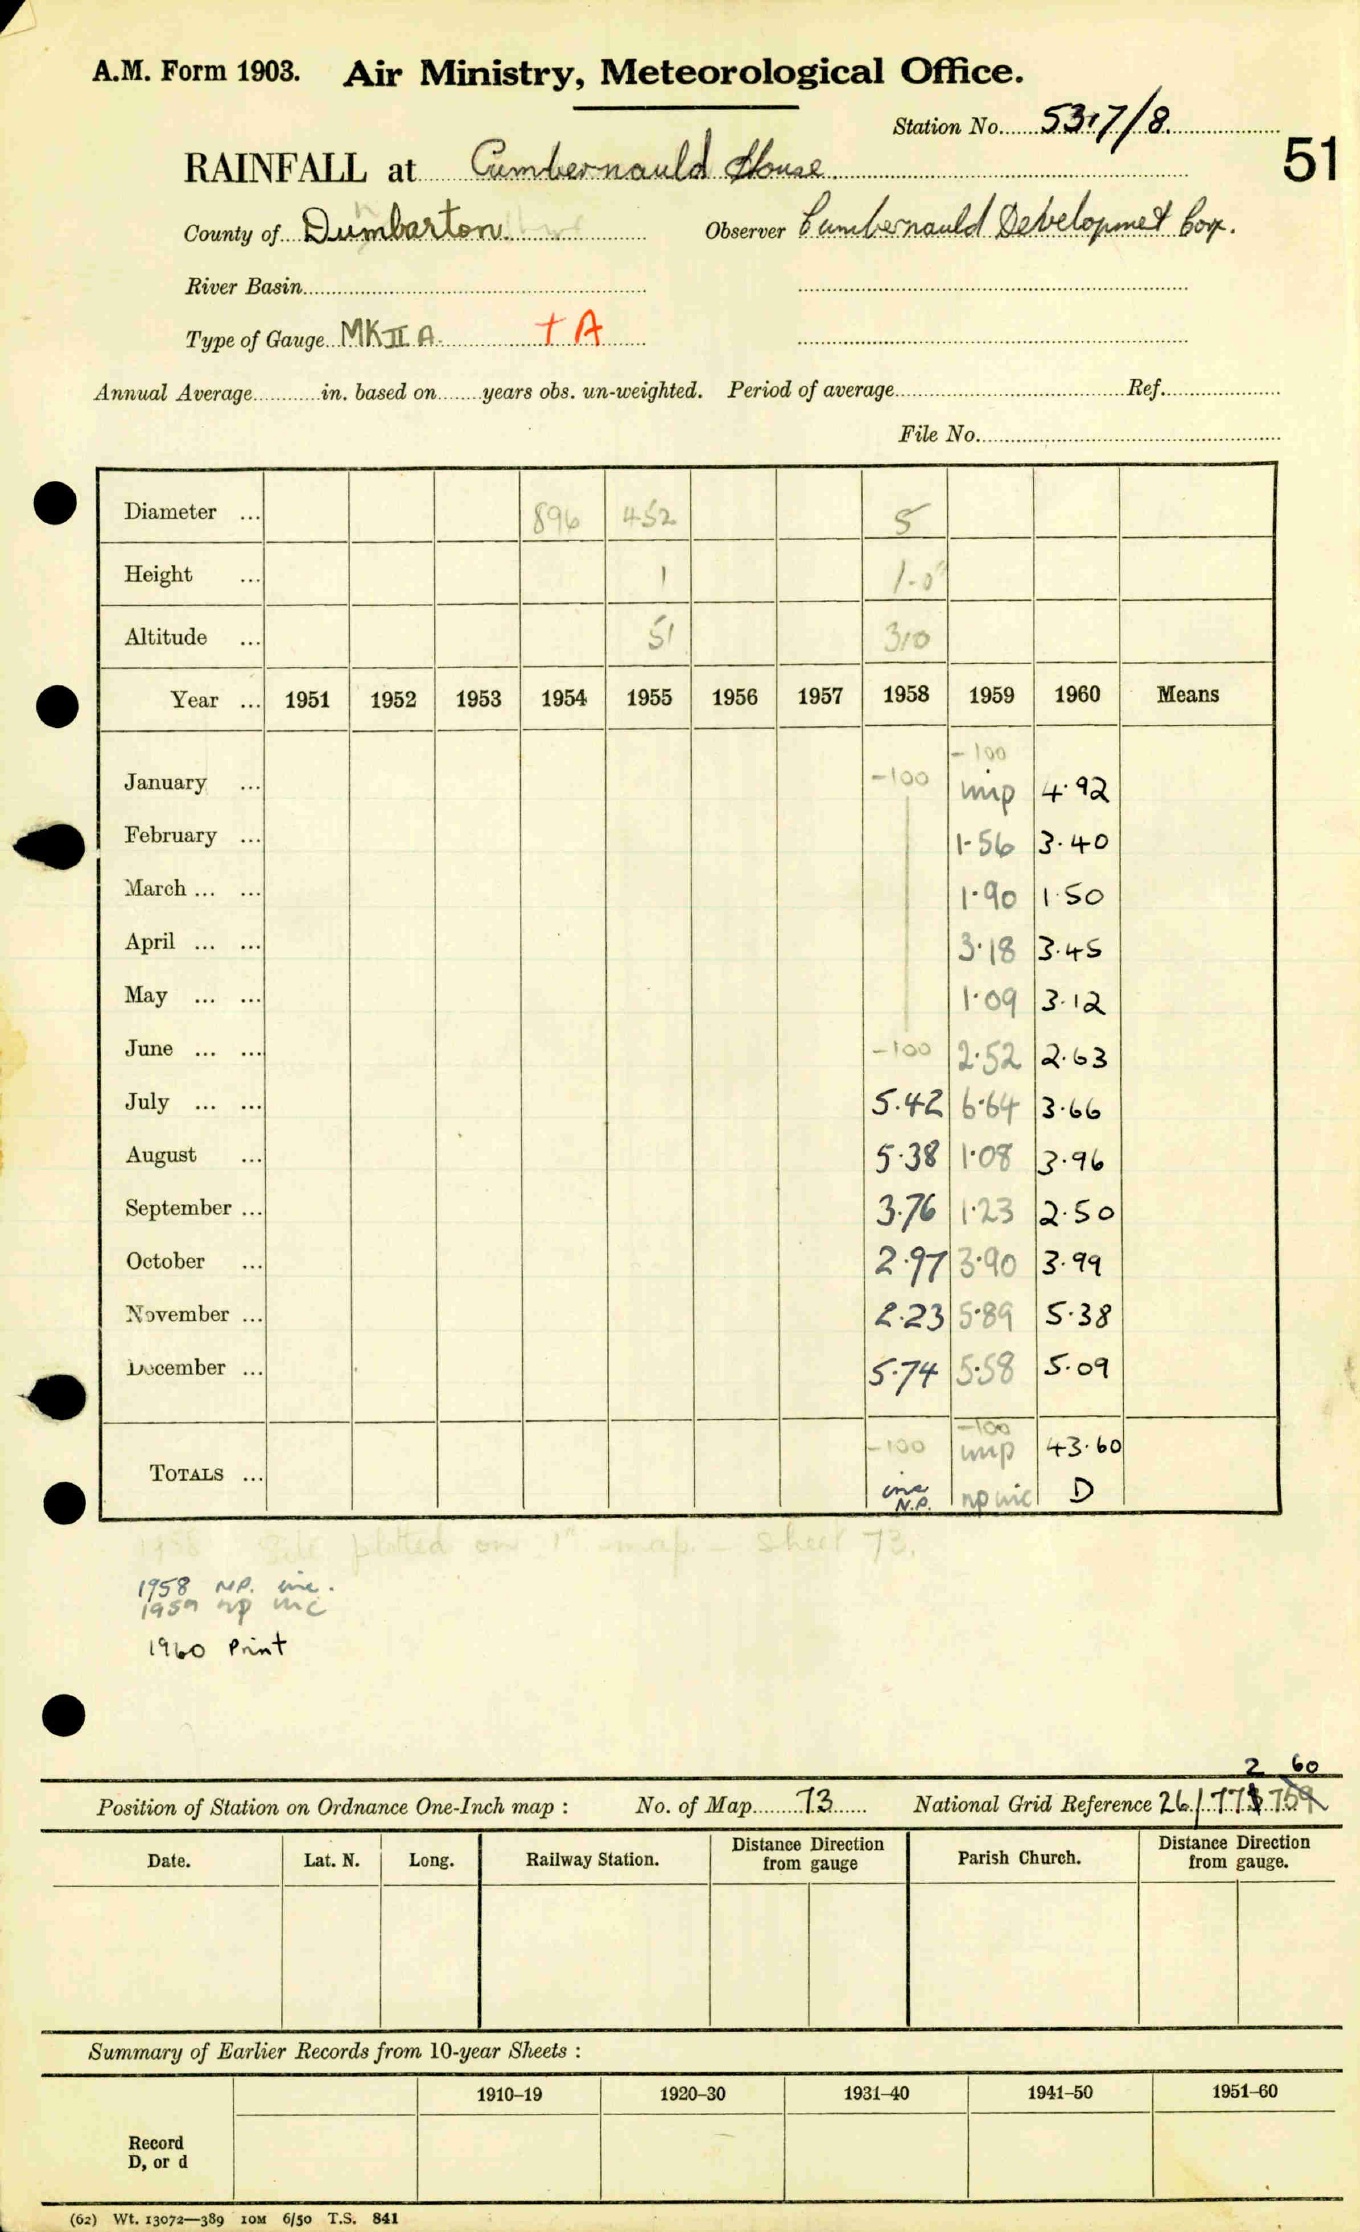 A.M. Form 1903. Air Ministry, Meteorological Office.
Station No. 5317/8.
51
RAINFALL at Cumbernauld House
County of Dumbarton. Observer Cumbernauld Developmet Corp.
River Basin
Type of Gauge MK II A. + A
Annual Average in. based on years obs. un-weighted. Period of average Ref.
File No.
Diameter ... 896 452 5
Height ... 1 1-0"
Altitude ... 51 310
Year ... 1951 1952 1953 1954 1955 1956 1957 1958 1959 1960 Means
-100
January ... -100 imp 4.92
February ... 1.56 3.40
March ... ... 1.90 1.50
April ... ... 3.18 3.45
May ... ... 1.09 3.12
June ... ... -100 2.52 2.63
July ... ... 5.42 6.64 3.66
August ... 5.38 1.08 3.96
September ... 3.76 1.23 2.50
October ... 2.97 3.90 3.99
November ... 2.23 5.89 5.38
December ... 5.74 5.58 5.09
-100
-100 imp 43.60
TOTALS ...
inc N.P. np inc D
1958 Site plotted on 1" map - sheet 73.
1958 N.P. inc.
1959 np inc
1960 Print
2 60
Position of Station on Ordnance One-Inch map : No. of Map 73 National Grid Reference 26/77 759
Date. Lat. N. Long. Railway Station. Distance Direction from gauge Parish Church. Distance Direction from gauge.
Summary of Earlier Records from 10-year Sheets :
1910–19 1920–30 1931–40 1941–50 1951–60
Record
D, or d
(62) Wt. 13072—389 10M 6/50 T.S. 841